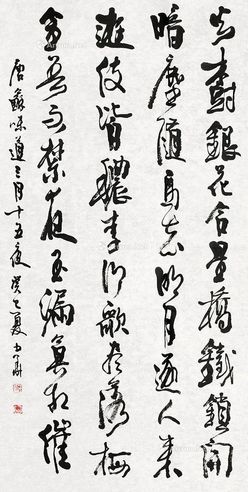 火樹銀花合星橋鐵鎖開
暗塵隨馬去明月逐人來
遊伎皆穠李行歌盡落梅
金吾不禁夜玉漏莫相催
唐蘇味道正月十五夜癸巳夏